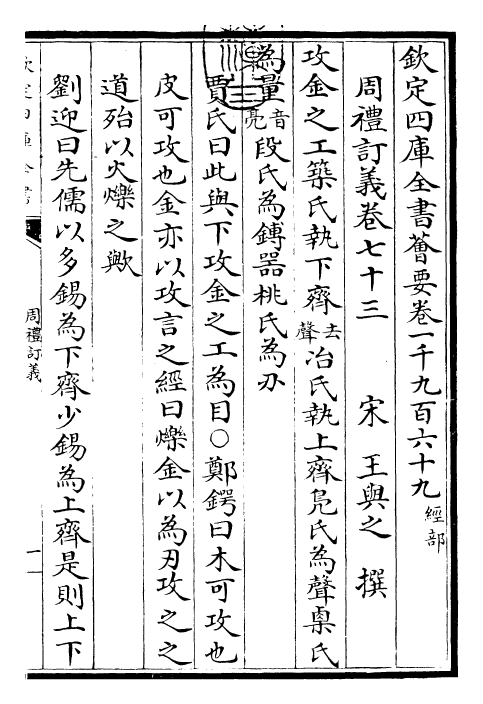 欽定四庫全書薈要卷一千九百六十九 經部
周禮訂義卷七十三 宋 王與之 撰
攻金之工築氏執下齊去聲冶氏執上齊鳧氏為聲㮚氏
為量音亮段氏為鎛器桃氏為刃
賈氏曰此與下攻金之工為目○鄭鍔曰木可攻也
皮可攻也金亦以攻言之經曰爍金以為刃攻之之
道殆以火爍之歟
劉迎曰先儒以多錫為下齊少錫為上齊是則上下
欽定四庫全書
周禮訂義
一